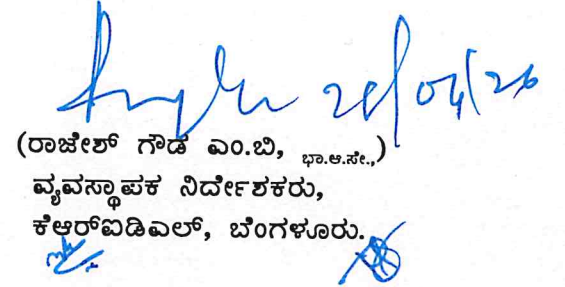 (ರಾಜೇಶ್ ಗೌಡ ಎಂ.ಬಿ, ಭಾ.ಆ.ಸೇ.,)
ವ್ಯವಸ್ಥಾಪಕ ನಿರ್ದೇಶಕರು,
ಕೆಆರ್‌ಐಡಿಎಲ್, ಬೆಂಗಳೂರು.